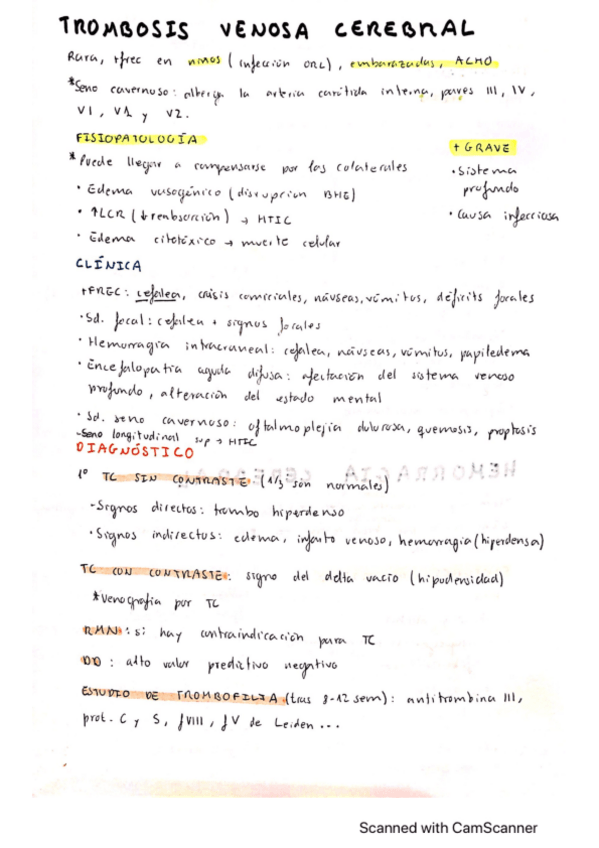 TROMBOSIS VENOSA CEREBRAL
Rara, +frec en niños (infección ORL), embarazadas, ACHO
*Seno cavernoso: alberga la arteria carótida interna, pares III, IV,
VI, V1 y V2.
FISIOPATOLOGÍA
*Puede llegar a compensarse por las colaterales
· Edema vasogénico (disrupcion BHE)
· ↑LCR (↓reabsorción) → HTIC
· Edema citotóxico → muerte celular
+ GRAVE
· Sistema
profundo
· Causa infecciosa
CLÍNICA
+FREC: cefalea, crisis comiciales, náuseas, vómitos, déficits focales
· Sd. focal: cefalea + signos focales
· Hemorragia intracraneal: cefalea, náuseas, vómitos, papiledema
· Encefalopatía aguda difusa: afectación del sistema venoso
profundo, alteración del estado mental
· Sd. seno cavernoso: oftalmoplejia dolorosa, quemosis, proptosis
-Seno longitudinal sup → HTIC
DIAGNÓSTICO
1º TC SIN CONTRASTE (1/3 son normales)
-Signos directos: trombo hiperdenso
· Signos indirectos: edema, infarto venoso, hemorragia (hiperdensa)
TC CON CONTRASTE: signo del delta vacío (hipodensidad)
*Venografía por TC
RMN: si hay contraindicación para TC
DD: alto valor predictivo negativo
ESTUDIO DE TROMBOFILIA (tras 8-12 sem): antitrombina III,
prot. C y S, fVIII, fV de Leiden ...
Scanned with CamScanner